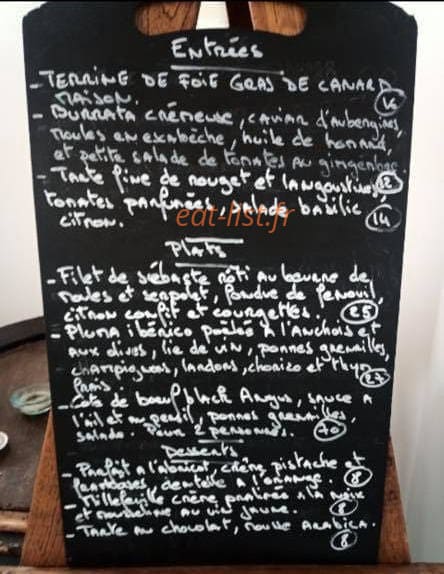 Entrées
- TERRINE DE FOIE GRAS DE CANARD
MAISON. 16
- BURRATA CRÉMEUSE, CAVIAR d'Aubergines,
moules en escabèche, huile de homard,
et petite salade de tomates au gingembre.
- Tarte fine de rouget et langoustines, 12
tomates parfumées, salade basilic
citron. 14
eat-list.fr
Plats
- Filet de sébaste rôti au beurre de
moules et serpolet, fondue de fenouil,
citron confit et courgettes. 25
- Pluma ibérico poêlée à l'anchois et
aux olives, lie de vin, pommes grenailles,
champignons, lardons, chorizo et thym
frais. 27
- Côte de boeuf black Angus, sauce à
l'ail et au persil, pommes grenailles,
salade. Pour 2 personnes. 70
Desserts
- Parfait à l'abricot, crème pistache et
framboises, dentelle à l'orange. 8
- Millefeuille crème pralinée à la noix
et mousseline au vin jaune. 8
- Tarte au chocolat, mousse ARABICA.
8